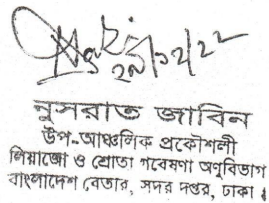 ২৯/১২/২২
নুসরাত জাবিন
উপ-আঞ্চলিক প্রকৌশলী
লিয়াজো ও শ্রোতা গবেষণা অণুবিভাগ
বাংলাদেশ বেতার, সদর দপ্তর, ঢাকা।